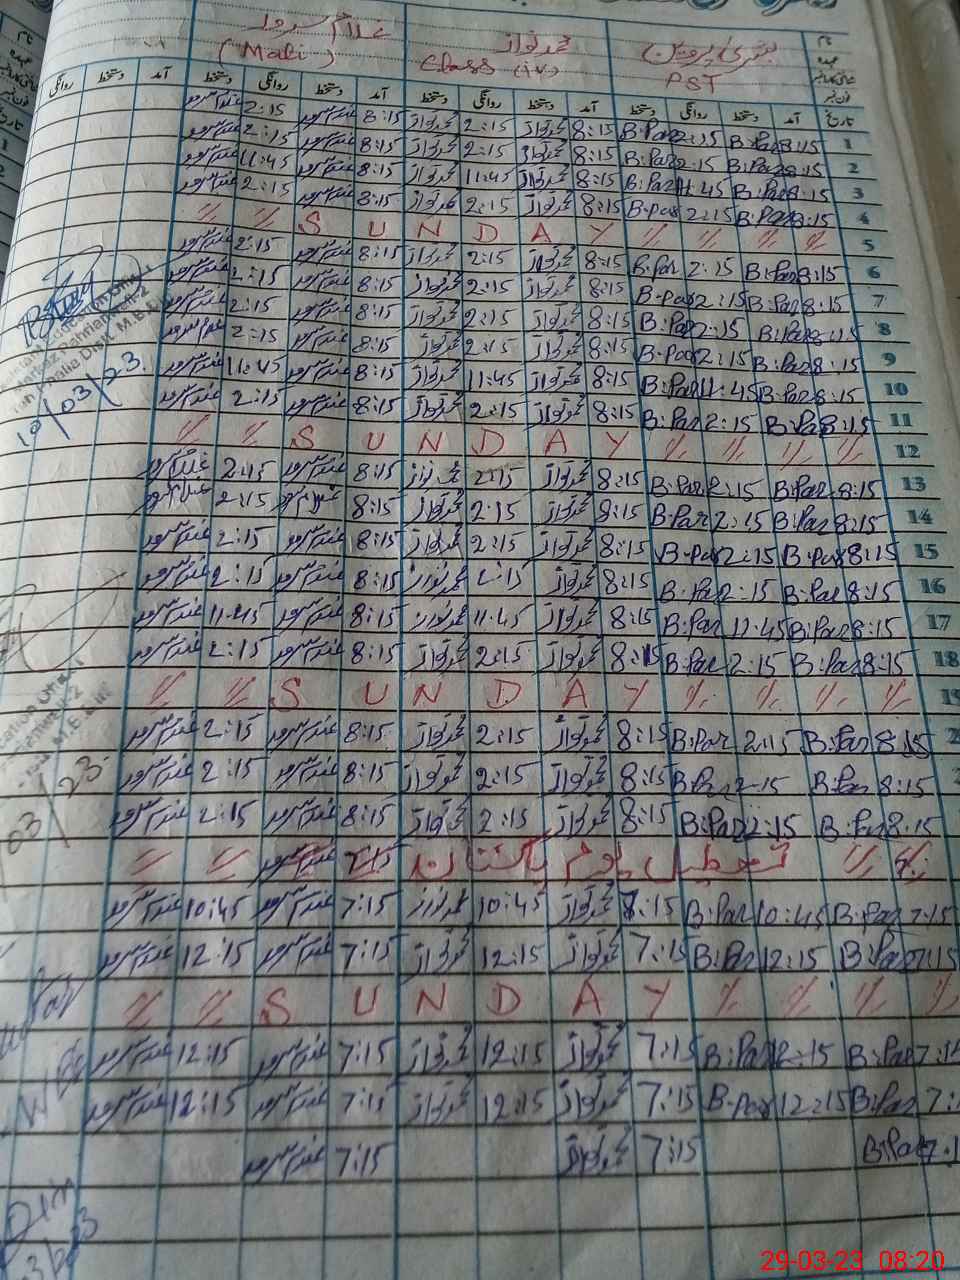 بشریٰ پروین محمد نواز غلام سرور
PST Class (iv) (Mali)
نام
عہدہ
فون نمبر
تاریخ آمد دستخط روانگی دستخط آمد دستخط روانگی دستخط آمد دستخط روانگی دستخط آمد دستخط روانگی
1 8:15 B:Par 2:15 B:Par 8:15 محمد نواز 2:15 محمد نواز 8:15 غلام سرور 2:15 غلام سرور
2 8:15 B:Par 2:15 B:Par 8:15 محمد نواز 2:15 محمد نواز 8:15 غلام سرور 2:15 غلام سرور
3 8:15 B:Par 11:45 B:Par 8:15 محمد نواز 11:45 محمد نواز 8:15 غلام سرور 11:45 غلام سرور
4 8:15 B:Par 2:15 B:Par 8:15 محمد نواز 2:15 محمد نواز 8:15 غلام سرور 2:15 غلام سرور
5 S U N D A Y
6 8:15 B:Par 2:15 B:Par 8:15 محمد نواز 2:15 محمد نواز 8:15 غلام سرور 2:15 غلام سرور
7 8:15 B:Par 2:15 B:Par 8:15 محمد نواز 2:15 محمد نواز 8:15 غلام سرور 2:15 غلام سرور
8 8:15 B:Par 2:15 B:Par 8:15 محمد نواز 2:15 محمد نواز 8:15 غلام سرور 2:15 غلام سرور
9 8:15 B:Par 2:15 B:Par 8:15 محمد نواز 2:15 محمد نواز 8:15 غلام سرور 2:15 غلام سرور
10 8:15 B:Par 11:45 B:Par 8:15 محمد نواز 11:45 محمد نواز 8:15 غلام سرور 11:45 غلام سرور
11 8:15 B:Par 2:15 B:Par 8:15 محمد نواز 2:15 محمد نواز 8:15 غلام سرور 2:15 غلام سرور
12 S U N D A Y
13 8:15 B:Par 2:15 B:Par 8:15 محمد نواز 2:15 محمد نواز 8:15 غلام سرور 2:15 غلام سرور
14 8:15 B:Par 2:15 B:Par 8:15 محمد نواز 2:15 محمد نواز 8:15 غلام سرور 2:15 غلام سرور
15 8:15 B:Par 2:15 B:Par 8:15 محمد نواز 2:15 محمد نواز 8:15 غلام سرور 2:15 غلام سرور
16 8:15 B:Par 2:15 B:Par 8:15 محمد نواز 2:15 محمد نواز 8:15 غلام سرور 2:15 غلام سرور
17 8:15 B:Par 11:45 B:Par 8:15 محمد نواز 11:45 محمد نواز 8:15 غلام سرور 11:45 غلام سرور
18 8:15 B:Par 2:15 B:Par 8:15 محمد نواز 2:15 محمد نواز 8:15 غلام سرور 2:15 غلام سرور
19 S U N D A Y
2 8:15 B:Par 2:15 B:Par 8:15 محمد نواز 2:15 محمد نواز 8:15 غلام سرور 2:15 غلام سرور
8:15 B:Par 2:15 B:Par 8:15 محمد نواز 2:15 محمد نواز 8:15 غلام سرور 2:15 غلام سرور
8:15 B:Par 2:15 B:Par 8:15 محمد نواز 2:15 محمد نواز 8:15 غلام سرور 2:15 غلام سرور
تعطیل یوم پاکستان 7:15 غلام سرور
7:15 B:Par 10:45 B:Par 7:15 محمد نواز 10:45 محمد نواز 7:15 غلام سرور 10:45 غلام سرور
7:15 B:Par 12:15 B:Par 7:15 محمد نواز 12:15 محمد نواز 7:15 غلام سرور 12:15 غلام سرور
S U N D A Y
7:15 B:Par 12:15 B:Par 7:15 محمد نواز 12:15 محمد نواز 7:15 غلام سرور 12:15 غلام سرور
7:1 B:Par 12:15 B:Par 7:15 محمد نواز 12:15 محمد نواز 7:15 غلام سرور 12:15 غلام سرور
7:1 B:Par 7:15 محمد نواز 7:15 غلام سرور
10/03/23
03/23
29-03-23 08:20